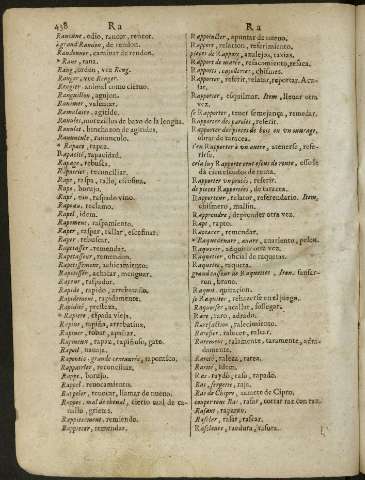 438 Ra
Rancune, odio, rancor, rencor.
à grand Randon, de rendon.
Randonner, caminar de rendon.
* Rane, rana.
Rang, orden, vee Reng.
Ranger, vee Renger.
Rangier, animal como cieruo.
Ranguillon, aguijon.
Ranimer, valentar.
Ramolaire, agitide.
de baxo de la lengua.
Ranulle, hinchazon de agitides.
Ranuncule, ranunculo.
* Rapace, rapaz.
Rapacité, rapacidad.
Rapage, rebusca.
reconciliar.
Rape, raspa, rallo, escofina.
Rape, borujo.
Rapé, vin, raspado vino.
Rapeau, reclamo.
Rapel, idem.
Rapement, raspamiento.
Raper, raspar, rallar, escofinar.
Raper, rebuscar.
Rapetasser, remendar.
Rapetasseur, remendon.
Rapetissement, achicamiento.
Rapetisser, achicar, menguar.
Rapeur, raspador.
Rapide, rapido, arrebatado.
Rapidement, rapidamente.
Rapidité, presteza.
* Rapiere, espada vieja.
Rapine, rapiña, arrebatina.
Rapiner, robar, rapiñar.
Rapineux, rapaz, rapiñoso, gato.
Rapoil, nauaja.
Rapontic, grande centauree, rapontico.
Rappaisier, reconciliar.
Rappe, borujo.
Rappel, reuocamiento.
Rappeler, reuocar, llamar de nueuo.
Rappes, mal de cheual, cierto mal de cauallo,
grietas.
Rappiecement, remiendo.
Rappiecer, remendar.
Ra
Rappointer, apuntar de nueuo.
Rapport, relacion, referimiento.
pieces de Rapport, azulejos, taxias.
Rapport de marée, refacimiento, resaca.
Rapports, chismes.
Rapporter, referir, relatar, reportar. Acusar.
Rapporter, esquilmar. Item, lleuar otra
vez.
se Rapporter, tener semejança, remedar.
Rapporter des paroles, referir.
Rapporter des pieces de bois en vn ouurage,
obrar de taracea.
s'en Rapporter à vn autre, atenerse, referirse.
cela luy Rapporte cent escus de rente, esso le
dà cien escudos de renta.
Rapporter vn procés, referir.
de pieces Rapportées, de taracea.
Rapporteur, relator, referendario. Item,
chismero, malsin.
Rapprendre, deprender otra vez.
Rapt, rapto.
Raptacer, remendar.
Raquerir, adquirir otra vez.
Raquetier, oficial de raquetas.
Raquette, raqueta.
Item. fanfarron,
bruno.
Raquit, quitacion.
se Raquiter, rehazerse en el juego.
Raquoiser, acallar, sossegar.
Rare, raro, adrado.
Rarefaction, ralecimiento.
Rarefier, ralecer, ralear.
Rarement, ralamente, raramente, adrádamente.
Rareté, raleza, rareza.
Rarité, idem.
Ras, raydo, raso, rapado.
Ras, sergette, raja.
Ras de Chipre, rasete de Cipro.
couper tout Ras, rasar, cortar raz con raz.
Rasant, rapante.
Rascler, rasar, rascar.
Rascleure, raedura, rasura.